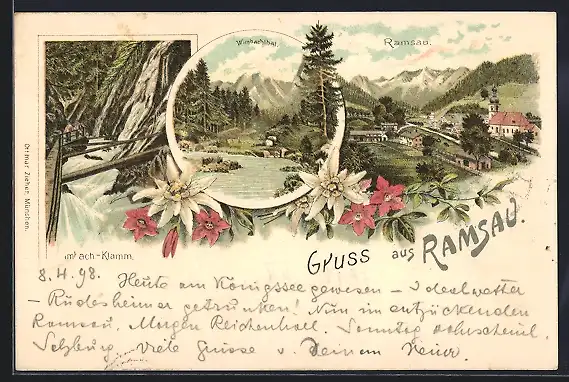 Wimbachthal.
Ramsau.
Ottmar Zieher, München.
imbach-Klamm.
Gruss aus RAMSAU.
8.4.98. Heute am Königssee gewesen – Idealwetter
– Rüdesheimer getrunken! Nun im entzückenden
Ramsau. Morgen Reichenhall. Sonntag
Salzburg. Viele Grüsse v. Deinem